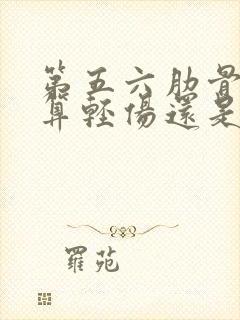 第五六肋骨
算輕傷還是
羅苑